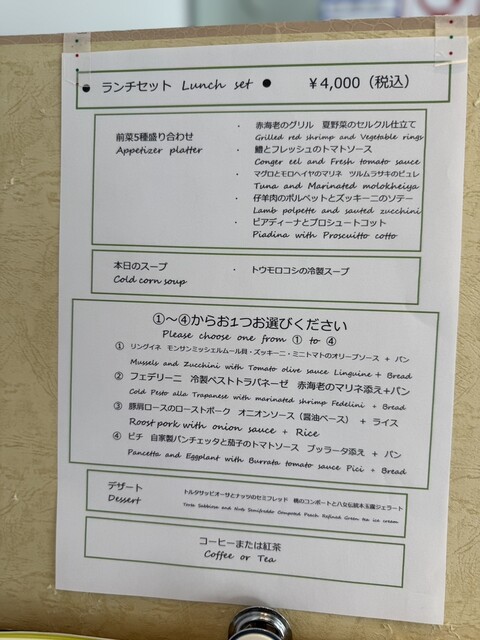 ● ランチセット Lunch set ● ￥4,000（税込）
前菜5種盛り合わせ
Appetizer platter
・ 赤海老のグリル 夏野菜のセルクル仕立て
Grilled red shrimp and Vegetable rings
・ 鱧とフレッシュのトマトソース
Conger eel and Fresh tomato sauce
・ マグロとモロヘイヤのマリネ ツルムラサキのピュレ
Tuna and Marinated molokheiya
・ 仔羊肉のポルペットとズッキーニのソテー
Lamb polpette and sauted zucchini
・ ピアディーナとプロシュートコット
Piadina with Proscuitto cotto
本日のスープ ・ トウモロコシの冷製スープ
Cold corn soup
①～④からお1つお選びください
Please choose one from ① to ④
① リングイネ モンサンミッシェルムール貝・ズッキーニ・ミニトマトのオリーブソース + パン
Mussels and Zucchini with Tomato olive sauce Linguine + Bread
② フェデリーニ 冷製ペストトラパネーゼ 赤海老のマリネ添え+パン
Cold Pesto alla Trapanese with marinated shrimp Fedelini + Bread
③ 豚肩ロースのローストポーク オニオンソース（醤油ベース） + ライス
Roost pork with onion sauce + Rice
④ ピチ 自家製パンチェッタと茄子のトマトソース ブッラータ添え + パン
Pancetta and Eggplant with Burrata tomato sauce Pici + Bread
デザート
Dessert
トルタサッビオーサとナッツのセミフレッド 桃のコンポートと八女伝統本玉露ジェラート
Torta Sabbiosa and Nuts Semifreddo Compoted Peach Refined Green tea ice cream
コーヒーまたは紅茶
Coffee or Tea